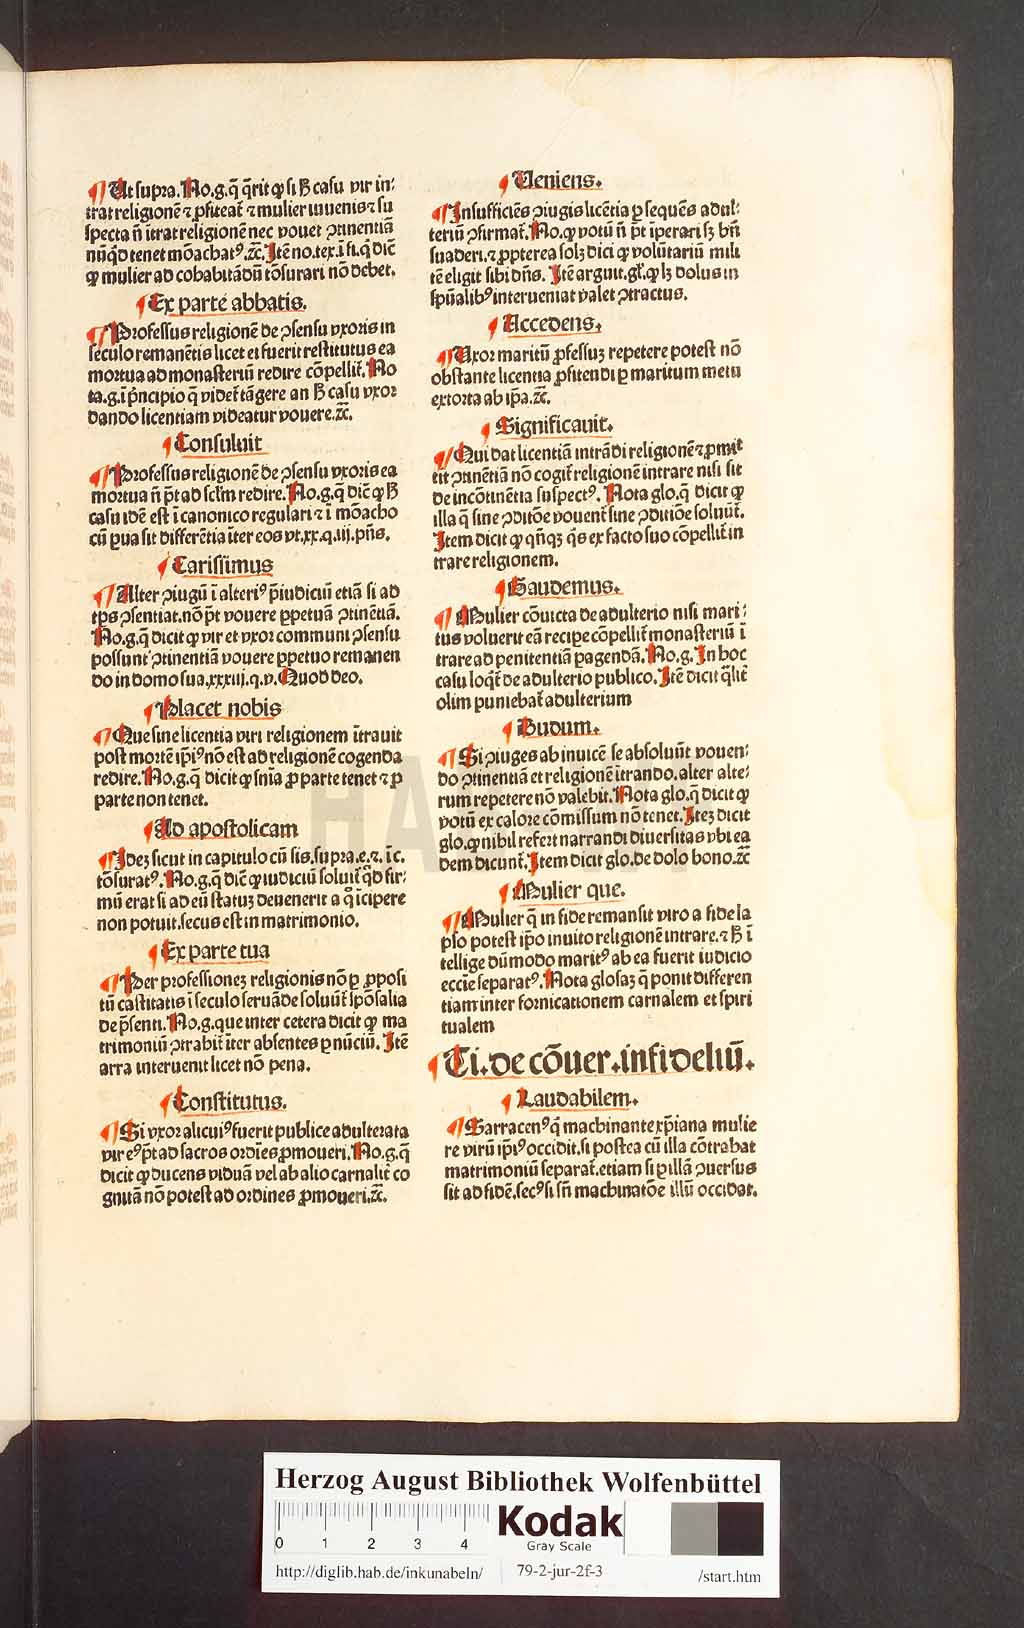 ¶ Ut supra. No.g.q̄ q̄rit ꝙ si ħ casu vir in⸗
trat religionē ⁊ ꝓfiteat̄ ⁊ mulier iuuenis ⁊ su
specta n̄ ītrat religionē nec vouet ꝯtinentiā
nūq̄d tenet mōachatꝰ.⁊c̄. Itē no.tex.i fi.q̄ dic̄
ꝙ mulier ad cohabitādū tōsurari nō debet.
¶ Ex parte abbatis.
¶ Professus religionē de ꝯsensu vxoris in
seculo remanētis licet ei fuerit restitutus ea
mortua ad monasteriū redire cōpellit̄. No
ta.g.i p̄ncipio q̄ videt̄ tāgere an ħ casu vxor
dando licentiam videatur vouere.⁊c̄.
¶ Consuluit
¶ Professus religionē de ꝯsensu vxoris ea
mortua n̄ p̄t ad scl̄m redire. No.g.q̄ dic̄ ꝙ ħ
casu idē est ī canonico regulari ⁊ ī mōacho
cū ꝑua sit differētia īter eos vt.xx.q.iij.p̄ns.
¶ Carissimus
¶ Alter ꝯiugū ī alteriꝰ p̄iudiciū etiā si ad
tp̄s ꝯsentiat.nō p̄t vouere ꝑpetuā ꝯtinētiā.
No.g.q̄ dicit ꝙ vir et vxor communi ꝯsensu
possunt ꝯtinentiā vouere ꝑpetuo remanen
do in domo sua.xxxiij.q.v. Quod deo.
¶ Placet nobis
¶ Que sine licentia viri religionem ītrauit
post mortē ip̄iꝰ nō est ad religionē cogenda
redire. No.g.q̄ dicit ꝙ sn̄ia ꝓ parte tenet ⁊ ꝓ
parte non tenet.
¶ Ad apostolicam
¶ Ideꝫ sicut in capitulo cū sis.supra.e.⁊. ī c.
tōsuratꝰ. No.g.q̄ dic̄ ꝙ iudiciū soluit̄ q̄d fir⸗
mū erat si ad eū statuꝫ deuenerit a q̊ īcipere
non potuit.secus est in matrimonio.
¶ Ex parte tua
¶ Per professioneꝫ religionis nō ꝑ ꝓposi
tū castitatis ī seculo seruāde soluūt̄ spōsalia
de p̄senti. No.g.que inter cetera dicit ꝙ ma
trimoniū ꝯtrahit̄ īter absentes ꝑ nūciū. Itē
arra interuenit licet nō pena.
¶ Constitutus.
¶ Si vxor alicuiꝰ fuerit publice adulterata
vir eꝰ p̄t ad sacros ordīes ꝓmoueri. No.g.q̄
dicit ꝙ ducens viduā vel ab alio carnalit̄ co
gnitā nō potest ad ordines ꝓmoueri.⁊c̄.
¶ Veniens.
¶ Insufficiēs ꝯiugis licētia ꝑ sequēs adul⸗
teriū ꝯfirmat̄. No.ꝙ votū n̄ p̄t īperari sꝫ bn̄
suaderi.⁊ ꝓpterea solꝫ dici ꝙ volūtariū mili
tē eligit sibi dn̄s. Itē arguit.gl̄.ꝙ lꝫ dolus in
spūalibꝰ interueniat valet ꝯtractus.
¶ Accedens.
¶ Uxor maritū ꝓfessuꝫ repetere potest nō
obstante licentia ꝓfitendi ꝑ maritum metu
extorta ab ip̄a.⁊c̄.
¶ Significauit.
¶ Qui dat licentiā intrādi religionē ⁊ ꝓmit
tit ꝯtinētiā nō cogit̄ religionē intrare nisi sit
de incōtinētia suspectꝰ. Nota glo.q̄ dicit ꝙ
illa q̄ sine ꝯditōe vouent̄ sine ꝯditiōe soluūt̄.
Item dicit ꝙ qn̄qꝫ q̄s ex facto suo cōpellit̄ in
trare religionem.
¶ Gaudemus.
¶ Mulier cōuicta de adulterio nisi mari⸗
tus voluerit eā recipe cōpellit̄ monasteriū ī
trare ad penitentiā ꝑagendā. No.g. In hoc
casu loq̄t̄ de adulterio publico. Itē dicit q̄lit̄
olim puniebat̄ adulterium
¶ Dudum.
¶ Si ꝯiuges ab inuicē se absoluūt vouen⸗
do ꝯtinentiā et religionē ītrando.alter alte⸗
rum repetere nō valebit. Nota glo.q̄ dicit ꝙ
votū ex calore cōmissum nō tenet. Iteꝫ dicit
glo.ꝙ nihil refert narrandi diuersitas vbi ea
dem dicunt̄. Item dicit glo.de dolo bono.⁊c̄
¶ Mulier que.
¶ Mulier q̄ in fide remansit viro a fide la
pso potest ip̄o inuito religionē intrare.⁊ ħ ī
tellige dūmodo maritꝰ ab ea fuerit iudicio
eccie separatꝰ. Nota glosaꝫ q̄ ponit differen
tiam inter fornicationem carnalem et spiri
tualem
¶ Ti. de cōuer. infideliū.
¶ Laudabilem.
¶ Sarracenꝰ q̄ machinante xp̄iana mulie
re virū ip̄iꝰ occidit.si postea cū illa cōtrahat
matrimoniū separat̄.etiam si ꝑ illā ꝯuersus
sit ad fidē.secꝰ si sn̄ machinatōe illū occidat.
HAB
Herzog August Bibliothek Wolfenbüttel
0 1 2 3 4
Kodak
Gray Scale
http://diglib.hab.de/inkunabeln/ 79-2-jur-2f-3 /start.htm